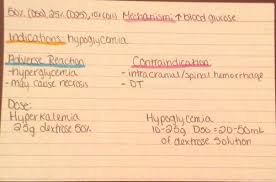 50% (D50) 25% (D25), 10% (D10) Mechanism: ↑ blood glucose
Indications: hypoglycemia
Adverse Reaction Contraindication
-hyperglycemia - intracranial/spinal hemorrhage
- may cause necrosis - DT
Dose:
Hyperkalemia Hypoglycemia
25g dextrose 50%. 10-25g D50 = 20-50mL
of dextrose solution